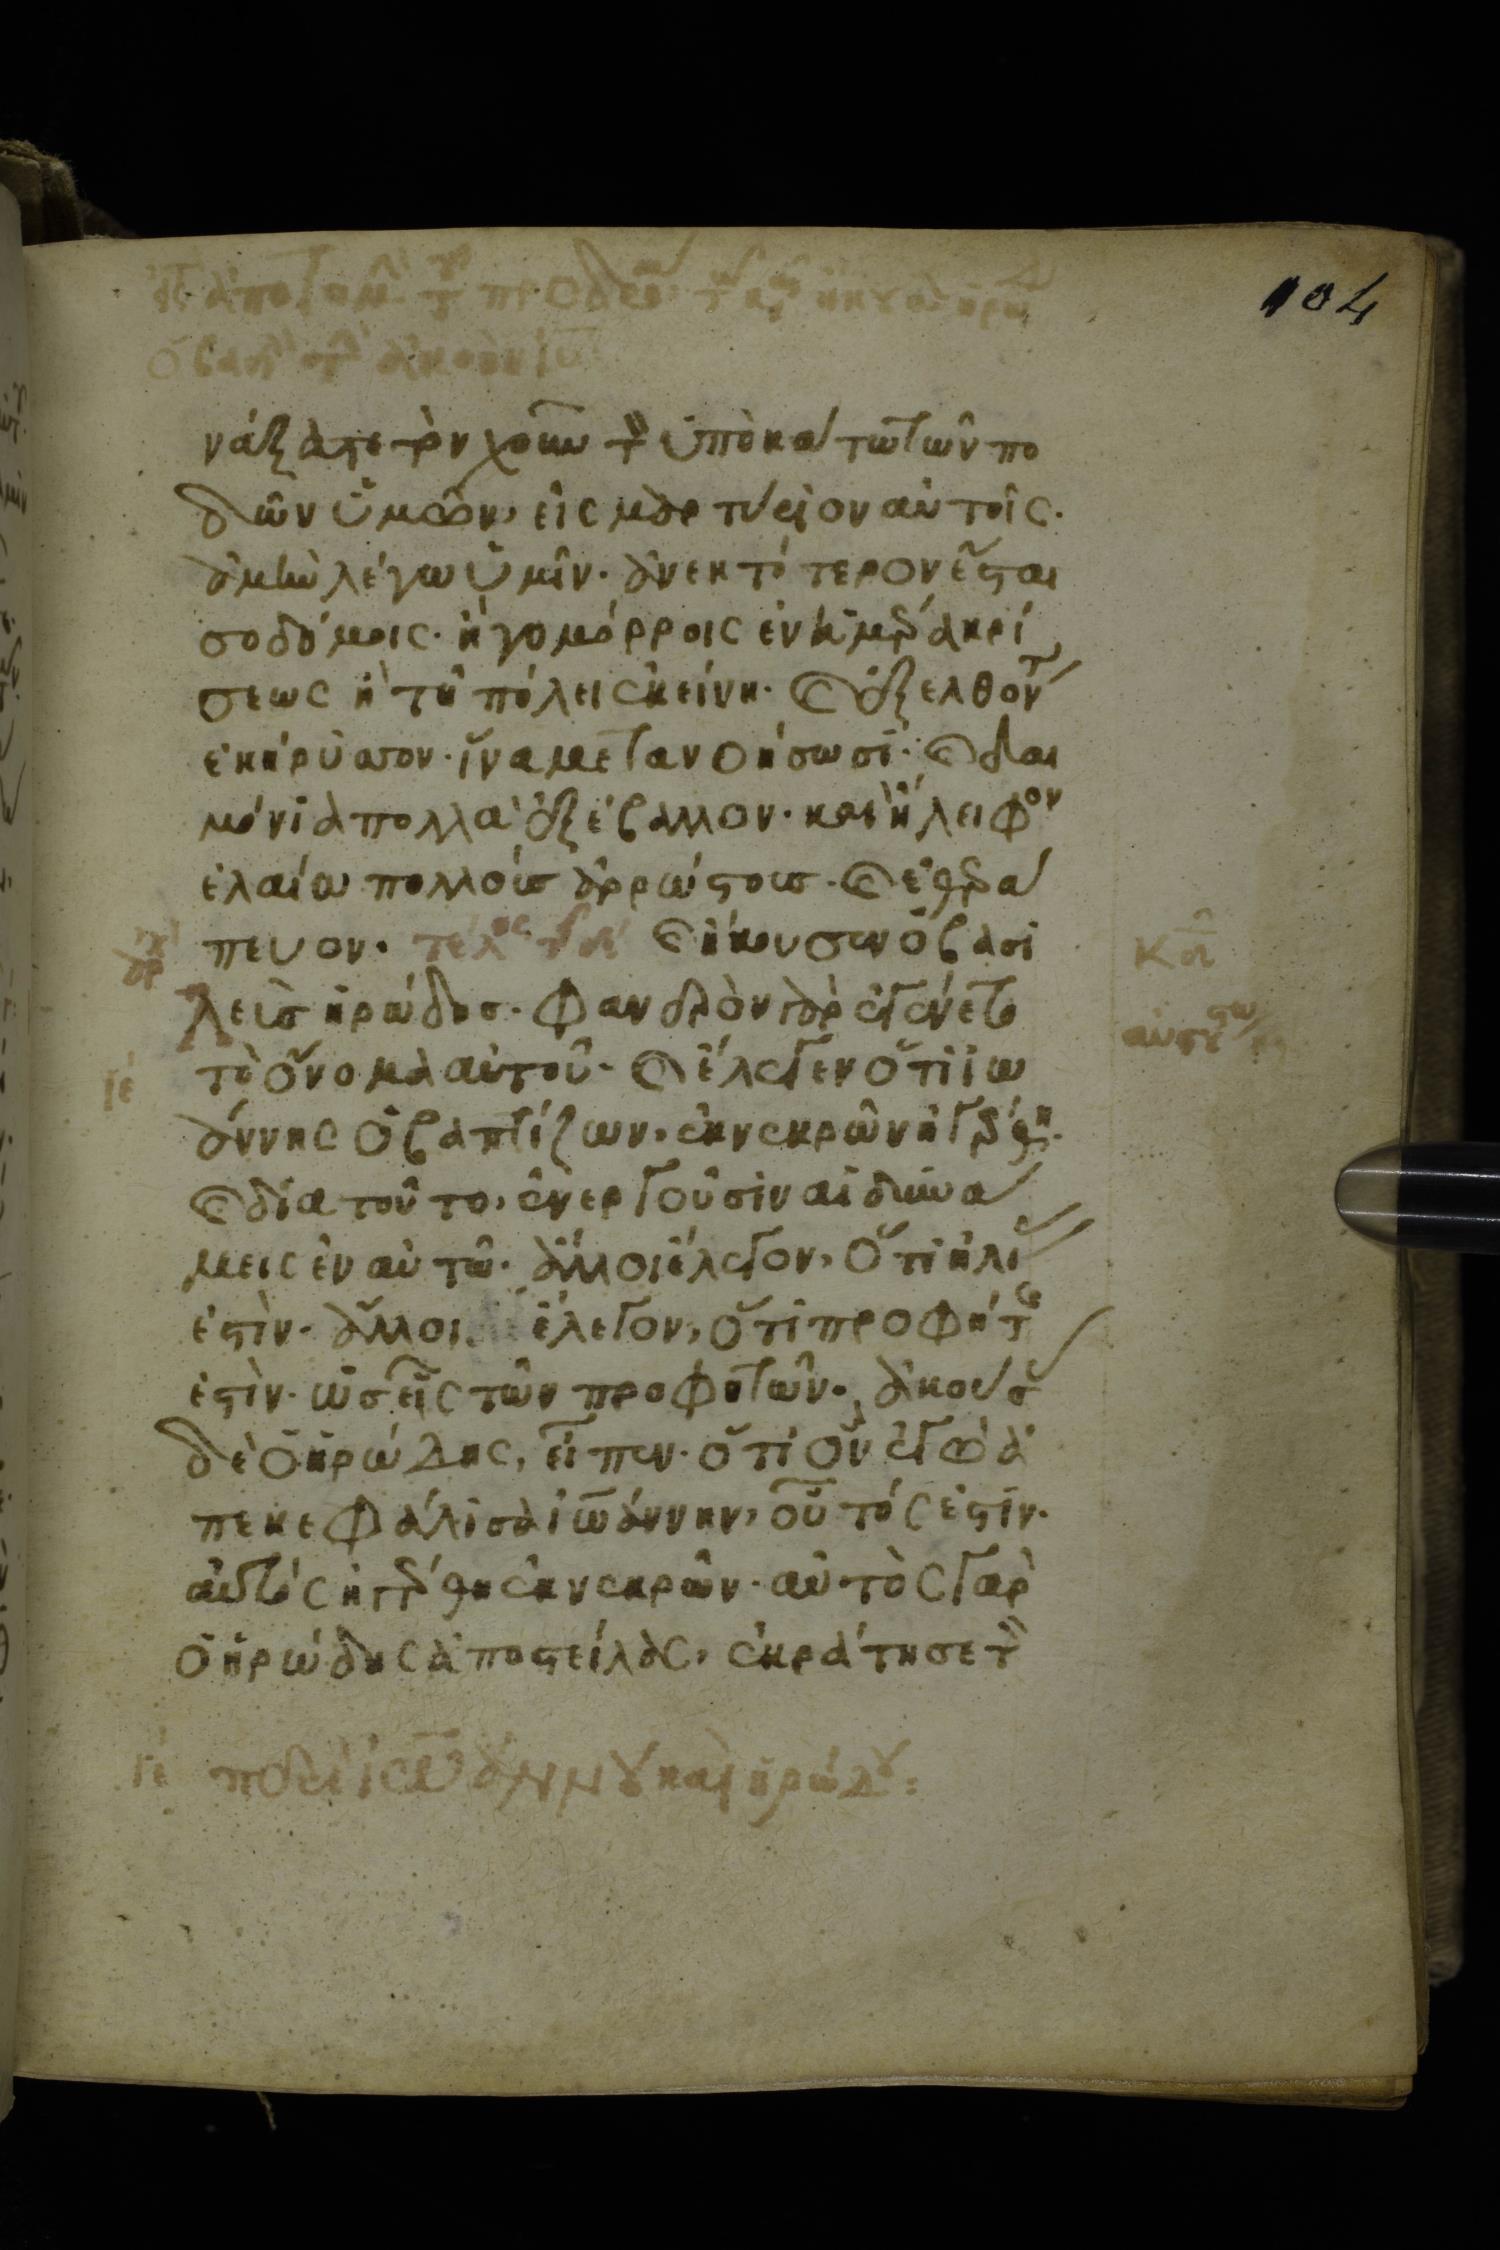 104
νάξατε τὸν χοῦν τὸν ὑποκάτω τῶν πο
δῶν ὑμῶν, εἰς μαρτύριον αὐτοῖς.
ἀμὴν λέγω ὑμῖν. ἀνεκτότερον ἔσται
σοδόμοις. ἢ γομόρροις ἐν ἡμέρα κρί
σεως ἢ τῆ πόλει ἐκείνη. καὶ ἐξελθόντ
ἐκήρυσσον. ἵνα μετανοήσωσι. καὶ δαι
μόνια πολλὰ ἐξέβαλλον. καὶ ἤλειφον
ἐλαίω πολλοὺς ἀρρώστους. καὶ ἐθερά
πευον. τέλος καὶ ἤκουσεν ὁ βασι
λεὺς ἡρώδης. φανερὸν γὰρ ἐγένετο
τὸ ὄνομα αὐτοῦ. καὶ ἔλεγεν ὅτι ἰω
άννης ὁ βαπτίζων, ἐκ νεκρῶν ἠγέρθη.
καὶ διὰ τοῦτο, ἐνεργοῦσιν αἱ δυνά
μεις ἐν αὐτῶ. ἄλλοι ἔλεγον, ὅτι ἠλί
ἐστὶν. ἄλλοι ἔλεγον, ὅτι προφήτης
ἐστὶν. ὡς εἷς τῶν προφητῶν. ἀκούσ
δὲ ὁ ἡρώδης, εἶπεν. ὅτι ὃν ἐγὼ ἀ
πεκεφάλισα ἰωάννην, οὗτός ἐστιν.
αὐτὸς ἠγέρθη ἐκ νεκρῶν. αὐτὸς γὰρ
ὁ ἡρώδης ἀποστείλας, ἐκράτησε τὸν
ιε περὶ ἰωάννου καὶ ἡρώδου: